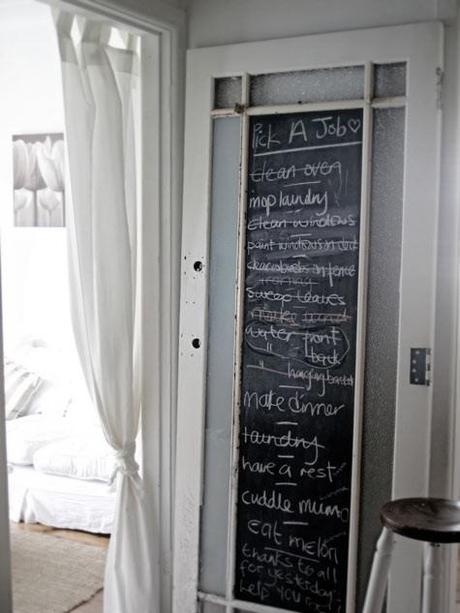 Pick A Job♡
clean oven
mop laundry
clean windows
paint windows in
fence
sweep leaves
water front
" back
" hanging basket
make dinner
laundry
have a rest
cuddle mum
eat melon
thanks to all
for yesterday
help you